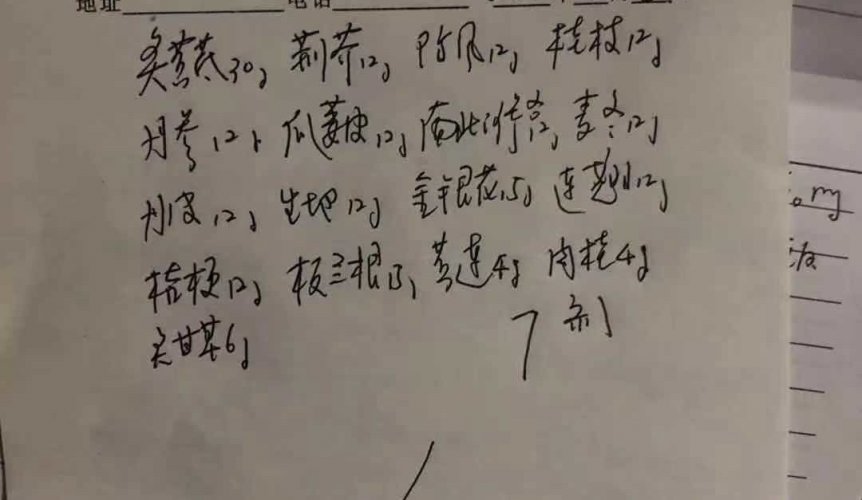 地址 电话
炙黄芪30g 荆芥12g 防风12g 桂枝12g
丹参12g 瓜蒌皮12g 南北沙参12g 麦冬12g
丹皮12g 生地12g 金银花15g 连翘12g
桔梗12g 板兰根15g 黄连4g 肉桂4g
炙甘草6g 7剂
mg